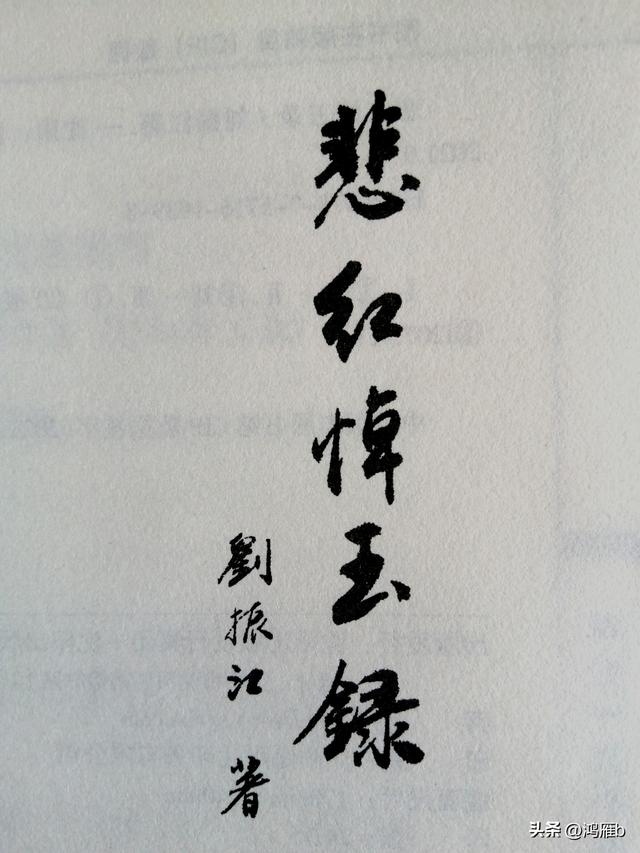 悲紅悼玉録
劉振江 著
头条 @鸿雁b